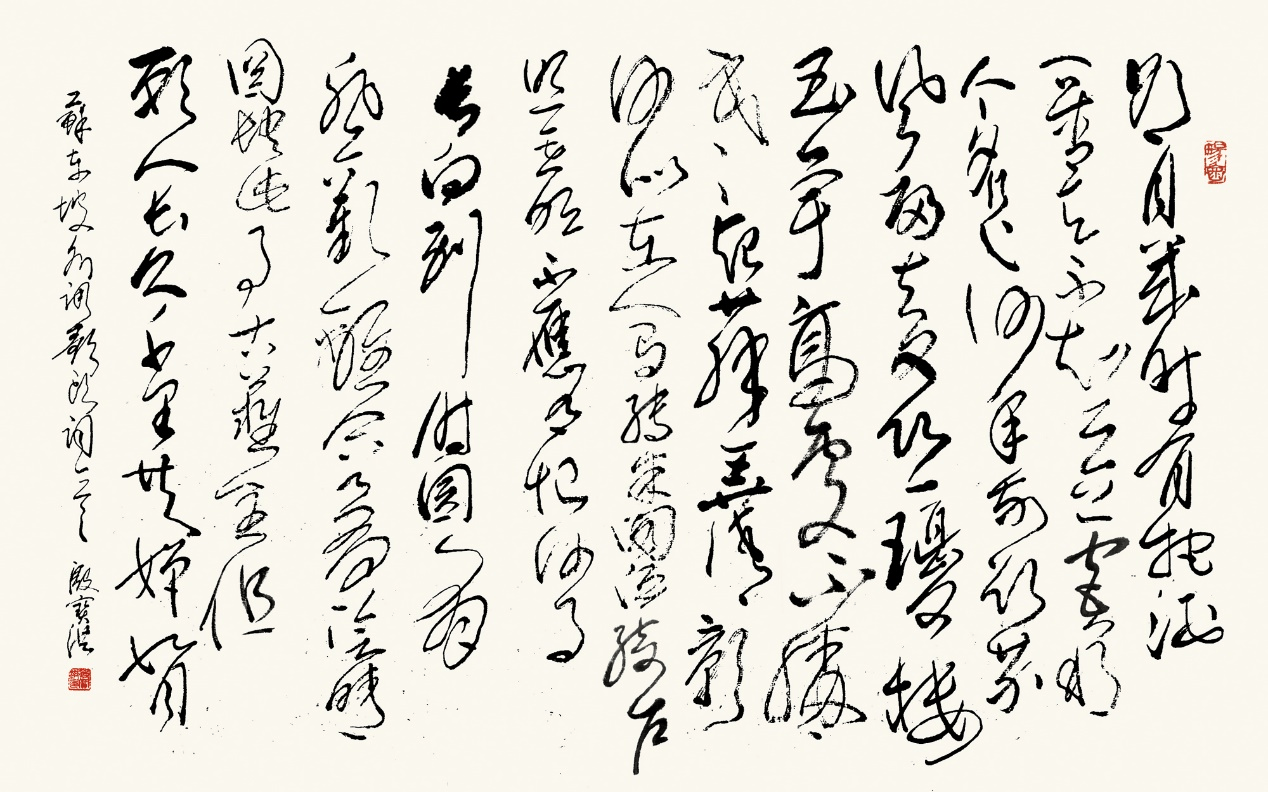 明月幾时有把酒
问青天不知天上宫阙
今夕是何年我欲乘
風歸去又恐瓊樓
玉宇高處不勝
寒起舞弄清影
何似在人间轉朱閣低綺户
照無眠不應有恨何事
長向別时圓人有
悲歡離合月有陰晴
圓缺此事古難全但
願人長久千里共嬋娟
蘇东坡水調歌頭詞一首 殷寶